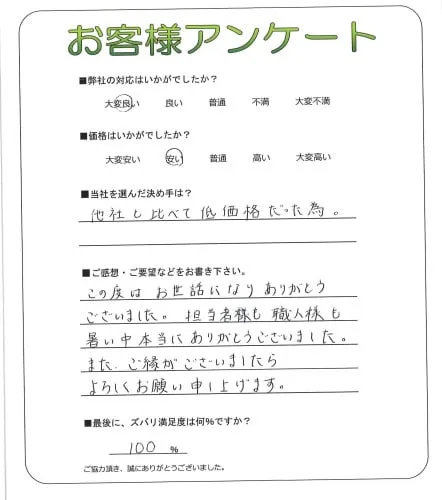 お客様アンケート
■弊社の対応はいかがでしたか？
大変良い 良い 普通 不満 大変不満
■価格はいかがでしたか？
大変安い 安い 普通 高い 大変高い
■当社を選んだ決め手は？
他社と比べて低価格だった為。
■ご感想・ご要望などをお書き下さい。
この度は お世話になり ありがとう
ございました。担当者様も 職人様も
暑い中本当にありがとうございました。
また、ご縁がございましたら
よろしくお願い申し上げます。
■最後に、ズバリ満足度は何％ですか？
100 %
ご協力頂き、誠にありがとうございました。